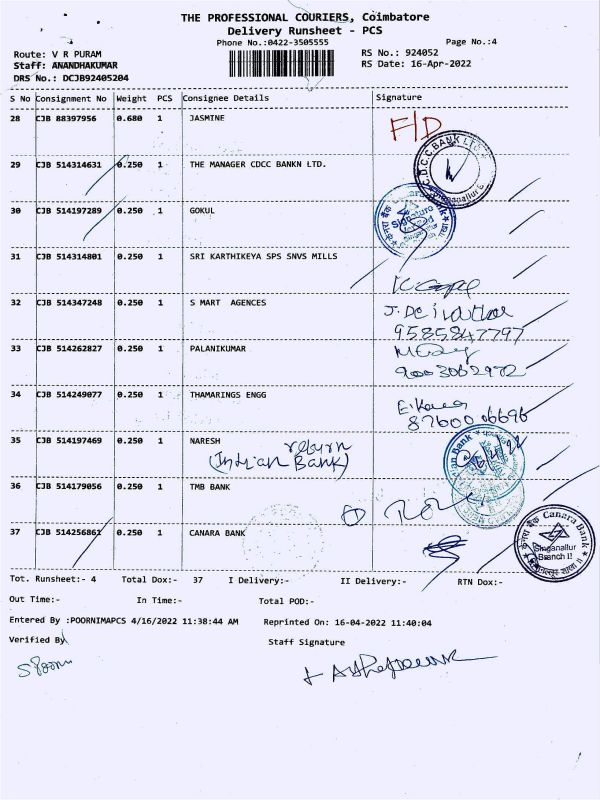 THE PROFESSIONAL COURIERS, Coimbatore
Delivery Runsheet - PCS
Phone No.:0422-3505555 Page No.:4
Route: V R PURAM RS No.: 924052
Staff: ANANDHAKUMAR RS Date: 16-Apr-2022
DRS No.: DCJB92405204
S No Consignment No Weight PCS Consignee Details Signature
28 CJB 88397956 0.680 1 JASMINE F/D
29 CJB 514314631 0.250 1 THE MANAGER CDCC BANKN LTD.
C.D.C.C BANK LTD
30 CJB 514197289 0.250 1 GOKUL
31 CJB 514314801 0.250 1 SRI KARTHIKEYA SPS SNVS MILLS
32 CJB 514347248 0.250 1 S MART AGENCES
9585847797
33 CJB 514262827 0.250 1 PALANIKUMAR
9003062972
34 CJB 514249077 0.250 1 THAMARINGS ENGG
87600 06696
35 CJB 514197469 0.250 1 NARESH return
(Indian Bank)
36 CJB 514179056 0.250 1 TMB BANK
37 CJB 514256861 0.250 1 CANARA BANK
केनरा बैंक Canara Bank
Singanallur
Branch II
Tot. Runsheet:- 4 Total Dox:- 37 I Delivery:- II Delivery:- RTN Dox:-
Out Time:- In Time:- Total POD:-
Entered By :POORNIMAPCS 4/16/2022 11:38:44 AM Reprinted On: 16-04-2022 11:40:04
Verified By Staff Signature